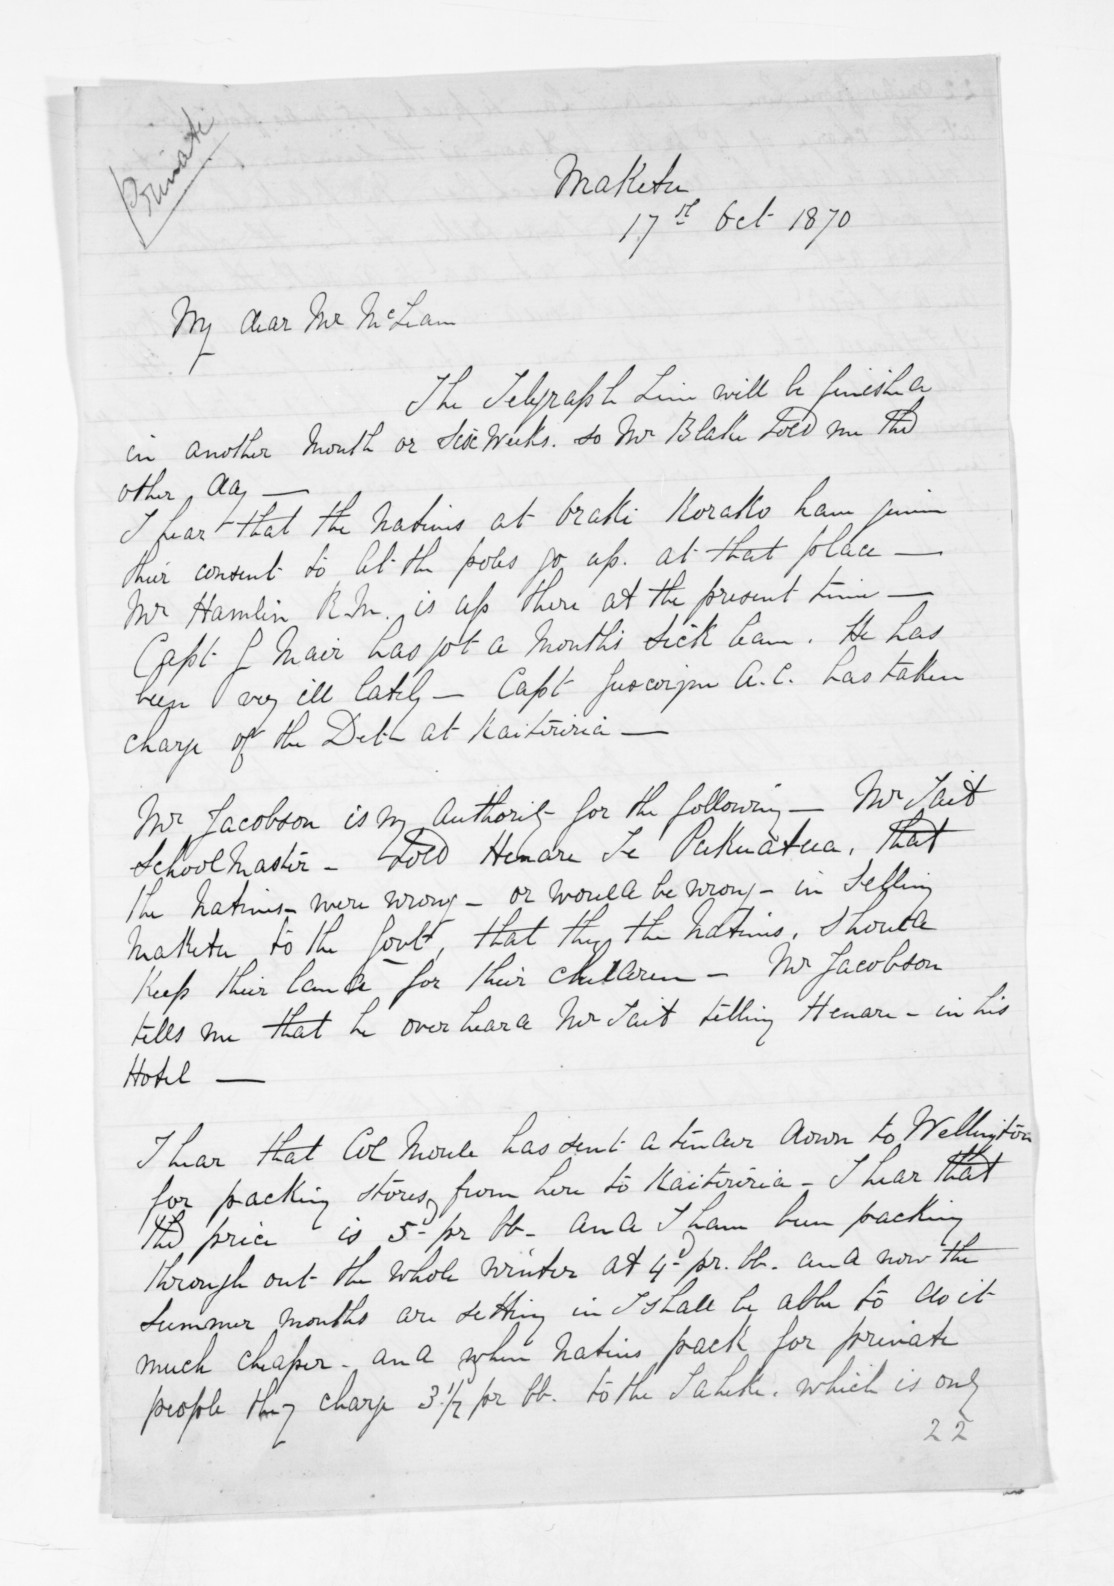 Private
Maketu
17th Oct 1870
My dear Mr McLean
The Telegraph Line will be finished
in another Month or Six Weeks. so Mr Blake told me the
other day —
I hear that the Natives at Oraki Korako have given
their consent to let the poles go up. at that place —
Mr Hamlin R.M. is up there at the present time —
Capt G Mair has got a Months Sick leave. He has
been very ill lately — Capt Gascoigne A.C. has taken
charge of the Det at Kaiteriria —
Mr Jacobson is my authority for the following — Mr Tait
School Master — told Henare Te Pukuatua, that
the Natives — were wrong — or would be wrong — in Selling
Maketu to the Govt, that they the Natives, should
Keep their land for their children — Mr Jacobson
tells me that he overheard Mr Tait telling Henare — in his
Hotel —
I hear that Col Moule has sent a tender down to Wellington
for packing stores, from here to Kaiteriria — I hear that
the price is 5d pr lb — and I have been packing
through out the whole winter at 4d pr. lb. and now the
Summer months are setting in I shall be able to do it
much cheaper — and when Natives pack for private
people they charge 3 1/2 pr lb. to the Taheke. which is only
22